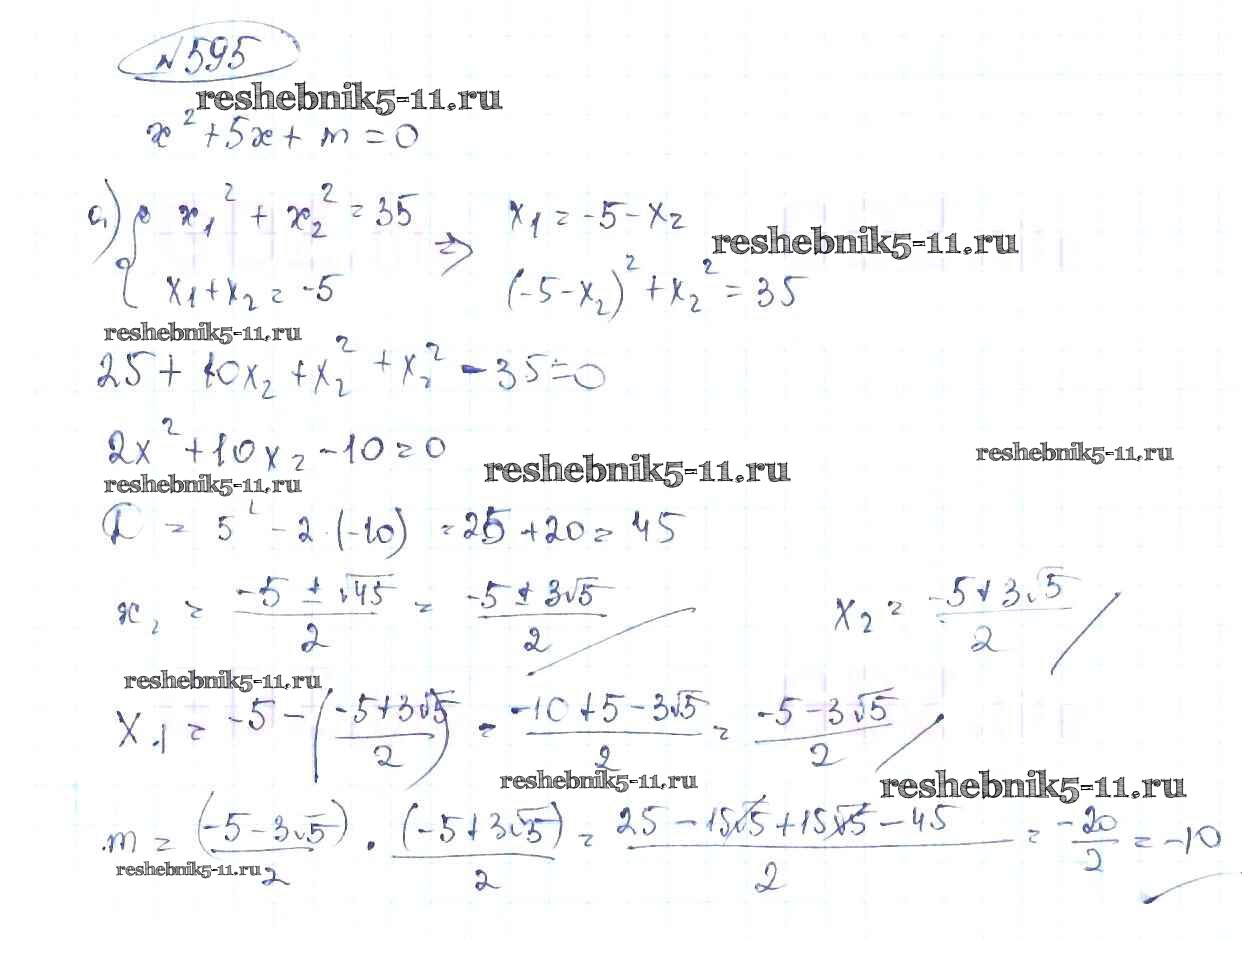 №595
reshebnik5-11.ru
x² + 5x + m = 0
а) { x₁² + x₂² = 35 ⇒ x₁ = -5 - x₂
reshebnik5-11.ru
x₁ + x₂ = -5 (-5 - x₂)² + x₂² = 35
reshebnik5-11.ru
25 + 10x₂ + x₂² + x₂² - 35 = 0
2x² + 10x₂ - 10 = 0
reshebnik5-11.ru
reshebnik5-11.ru
reshebnik5-11.ru
D = 5² - 2·(-10) = 25 + 20 = 45
x₂ = (-5 ± √45)/2 = (-5 ± 3√5)/2 x₂ = (-5 + 3√5)/2
reshebnik5-11.ru
x₁ = -5 - ((-5 + 3√5)/2) = (-10 + 5 - 3√5)/2 = (-5 - 3√5)/2
reshebnik5-11.ru
reshebnik5-11.ru
m = (-5 - 3√5)/2 · (-5 + 3√5)/2 = (25 - 15√5 + 15√5 - 45)/2 = -20/2 = -10
reshebnik5-11.ru